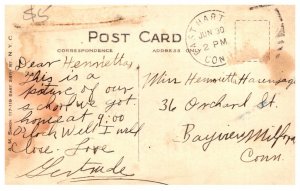 85
POST CARD
CORRESPONDENCE
ADDRESS ONLY
EAST HART
JUN 30
2 PM
CON
Dear Henrietta,
This is a
picture of our
school we got
home at 9:00
Oclock Well I will
Close. Love
Gertrude
Miss Henrietta
36 Orchard St.
Bayview Milford
Conn.